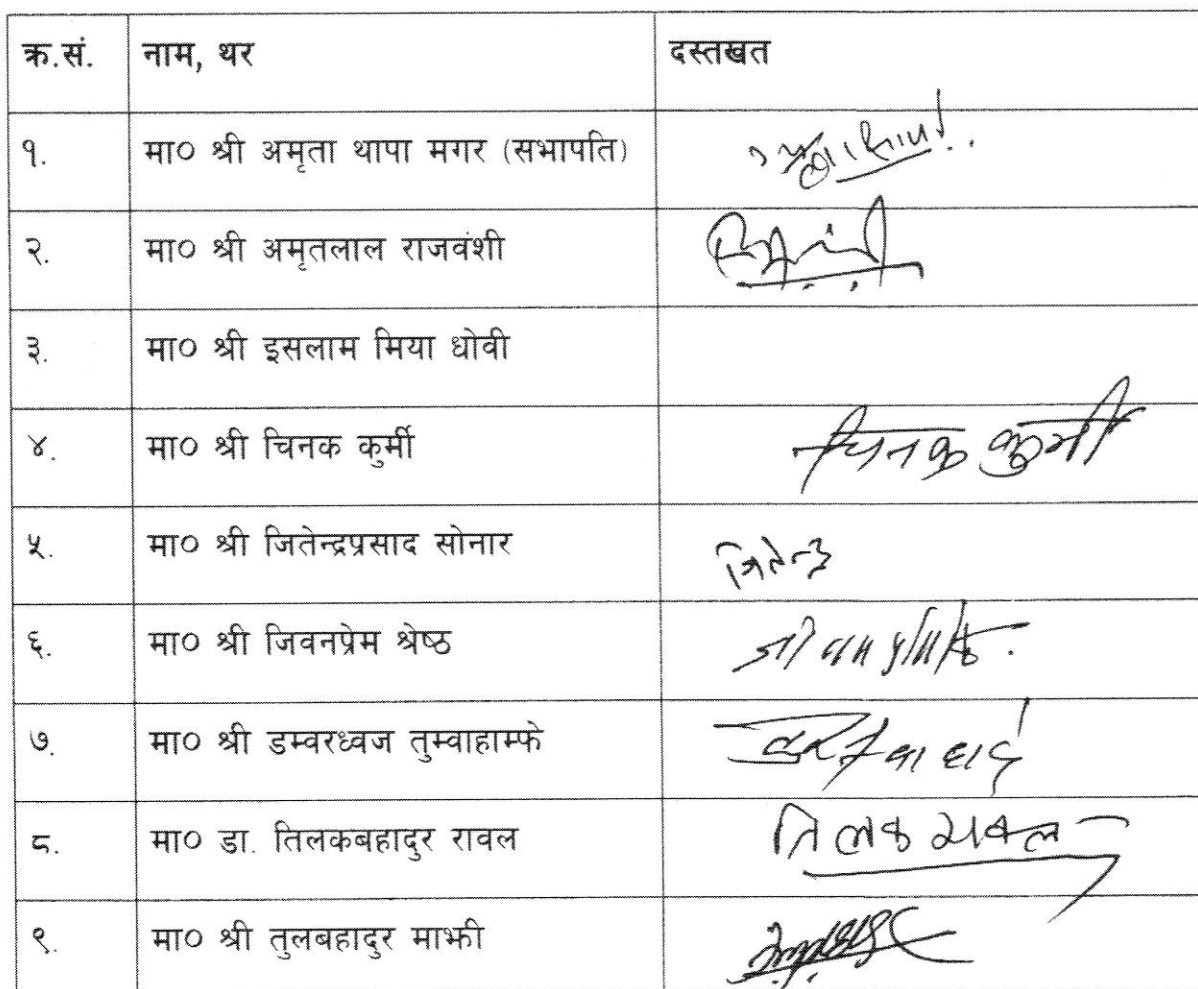 क्र.सं. नाम, थर दस्तखत
१. मा० श्री अमृता थापा मगर (सभापति)
२. मा० श्री अमृतलाल राजवंशी
३. मा० श्री इसलाम मिया धोवी
४. मा० श्री चिनक कुर्मी चिनक कुर्मी
५. मा० श्री जितेन्द्रप्रसाद सोनार जितेन्द्र
६. मा० श्री जिवनप्रेम श्रेष्ठ
७. मा० श्री डम्वरध्वज तुम्वाहाम्फे
८. मा० डा. तिलकबहादुर रावल तिलक रावल
९. मा० श्री तुलबहादुर माझी